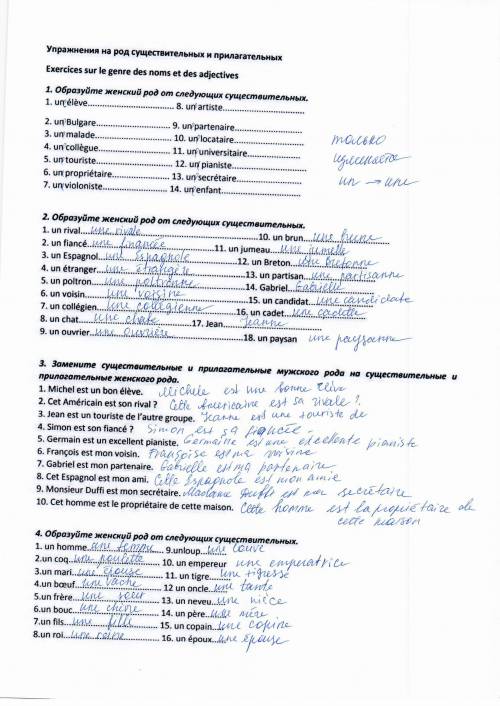 Упражнения на род существительных и прилагательных
Exercices sur le genre des noms et des adjectives
1. Образуйте женский род от следующих существительных.
1. un élève........................ 8. un artiste........................
2. un Bulgare........................ 9. un partenaire........................
3. un malade........................ 10. un locataire........................ только
4. un collègue........................ 11. un universitaire........................ изменяется
5. un touriste........................ 12. un pianiste........................
6. un propriétaire........................ 13. un secrétaire........................ un → une
7. un violoniste........................ 14. un enfant........................
2. Образуйте женский род от следующих существительных.
1. un rival....une rivale........................10. un brun....une brune
2. un fiancé....une fiancée....11. un jumeau....une jumelle
3. un Espagnol....une Espagnole....12. un Breton....une Bretonne
4. un étranger....une étrangère....13. un partisan....une partisanne
5. un poltron....une poltronne....14. Gabriel....Gabrielle
6. un voisin....une voisine....15. un candidat....une candidate
7. un collégien....une collégienne....16. un cadet....une cadette
8. un chat....une chate....17. Jean....Jeanne
9. un ouvrier....une ouvrière....18. un paysan une paysanne
3. Замените существительные и прилагательные мужского рода на существительные и
прилогательные женского рода.
1. Michel est un bon élève. Michèle est une bonne élève
2. Cet Américain est son rival ? Cette Américaine est sa rivale ?
3. Jean est un touriste de l'autre groupe. Jeanne est une touriste de
4. Simon est son fiancé ? Simon est sa fiancée.
5. Germain est un excellent pianiste. Germaine est une excellente pianiste
6. François est mon voisin. Françoise est ma voisine
7. Gabriel est mon partenaire. Gabrielle est ma partenaire
8. Cet Espagnol est mon ami. Cette Espagnole est mon amie
9. Monsieur Duffi est mon secrétaire. Madame Duffi est secrétaire
10. Cet homme est le propriétaire de cette maison. Cette homme est la propriétaire de
cette maison
4. Образуйте женский род от следующих существительных.
1. un homme....une femme....9.unloup....une louve
2.un coq....une poulette....10. un empereur une emperatrice
3.un mari....une épouse....11. un tigre....une tigresse
4.un bœuf....une vache....12 un oncle....une tante
5.un frère....une sœur....13. un neveu....une nièce
6.un bouc....une chèvre....14. un père....une mère
7.un fils....une fille....15. un copain....une copine
8.un roi....une reine....16. un époux....une épouse